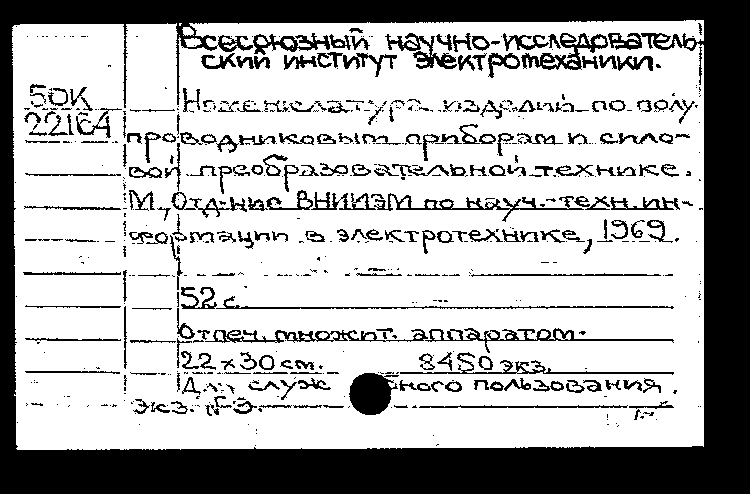 Всесоюзный научно-исследователь-
ский институт электромеханики.
50К
22164
Номенклатура изделий по полу
проводниковым приборам и сило-
вой преобразовательной технике.
М., Отд-ние ВНИИЭМ по науч.-техн. ин-
формации в электротехнике, 1969.
52 с.
Отпеч. множит. аппаратом.
22 x 30 см. 8450 экз.
Для служебного пользования.
Экз. № 3.